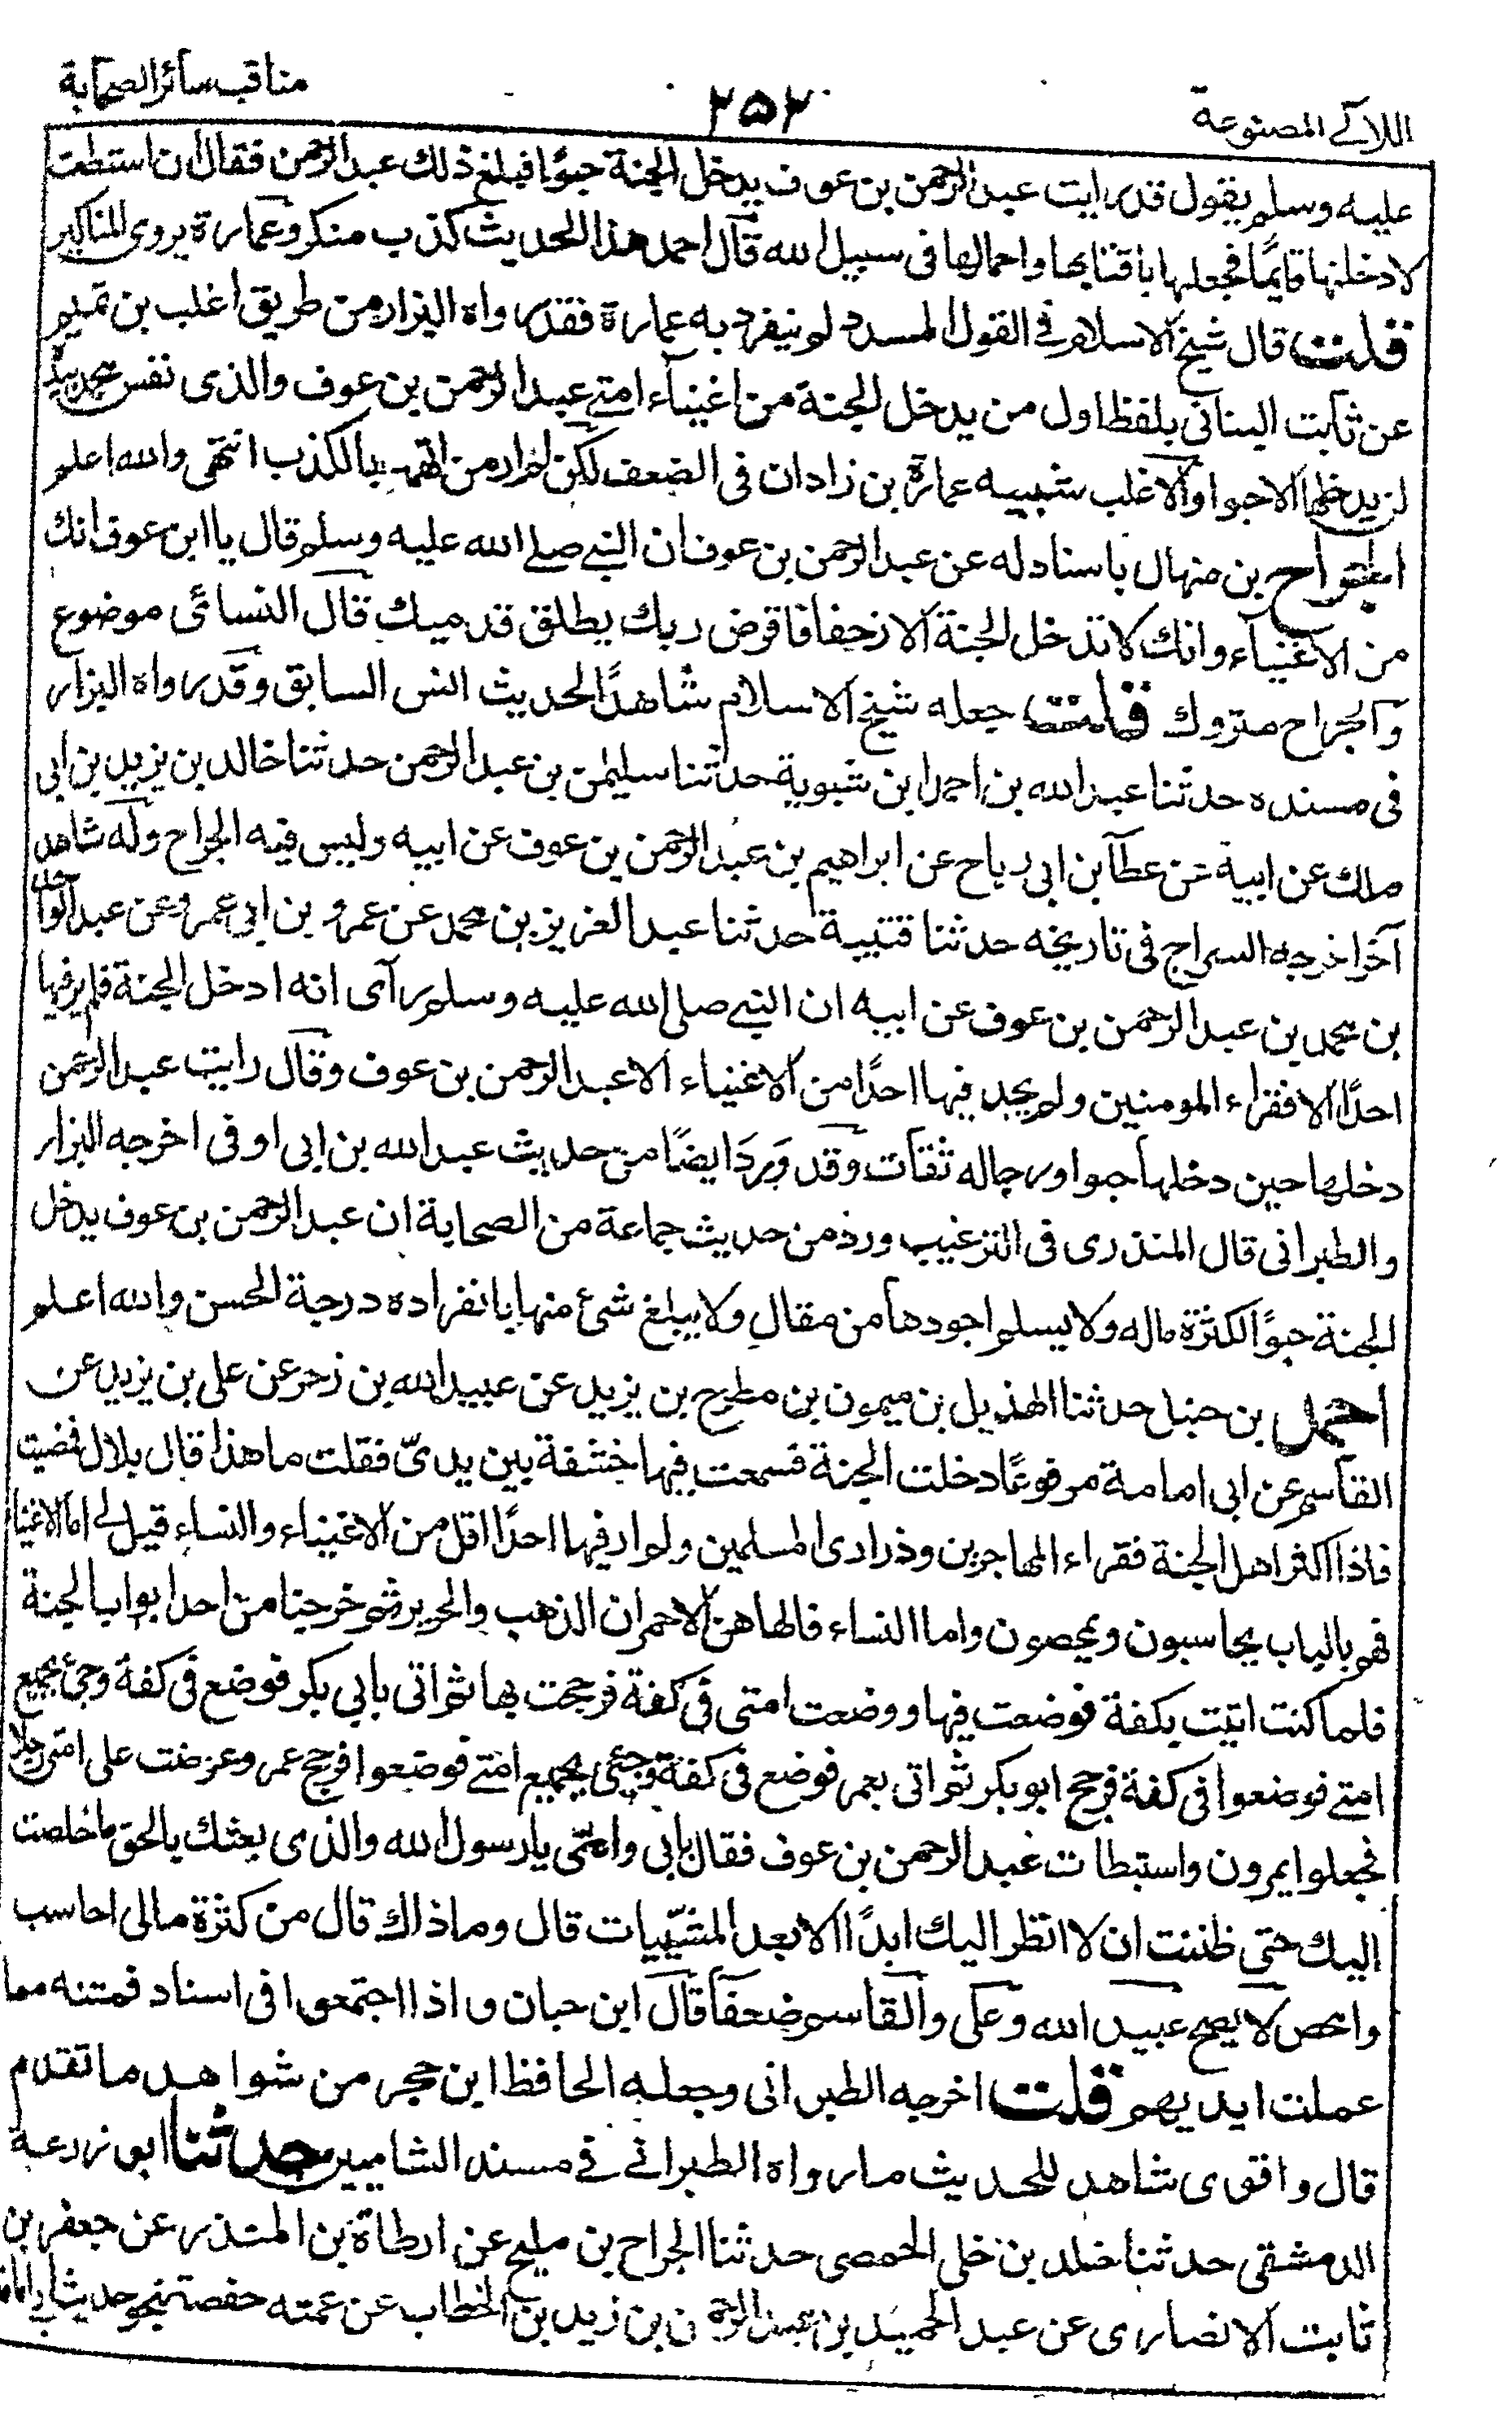 اللآلے المصنوعة
۲۵۲
مناقب سائر الصحابة
عليه وسلم يقول قد رايت عبد الرحمن بن عوف يدخل الجنة حبوًا فبلغ ذلك عبد الرحمن فقال ان استطعت
لادخلنها قايمًا فجعلها باقتابها واحمالها فى سبيل الله قال احمد هذا الحديث كذب منكر وعمارة يروى المناكير
قلت قال شيخ الاسلام فے القول المسدد لم ينفرد به عمارة فقد رواه البزار من طريق اغلب بن تميم
عن ثابت البنانى بلفظ اول من يدخل الجنة من اغنياء امتے عبد الرحمن بن عوف والذى نفس محمد بيده
لن يدخلها الا حبوا والاغلب شبيه عمارة بن زادان فى الضعف لكن لم ار من اتهمه بالكذب انتهى والله اعلم
الجراح بن منهال باسناد له عن عبد الرحمن بن عوف ان النبے صلے الله عليه وسلم قال يا ابن عوف انك
من الاغنياء وانك لا تدخل الجنة الا زحفا فاقرض ربك يطلق قدميك قال النسائى موضوع
والجراح متروك قلت جعله شيخ الاسلام شاهدًا لحديث انس السابق وقد رواه البزار
فى مسنده حدثنا عبد الله بن احمد ابن شبوية حدثنا سليمن بن عبد الرحمن حدثنا خالد بن يزيد بن ابى
ملك عن ابيه عن عطآ بن ابى رباح عن ابراهيم بن عبد الرحمن بن عوف عن ابيه وليس فيه الجراح وله شاهد
آخر اخرجه السراج فى تاريخه حدثنا قتيبة حدثنا عبد العزيز بن محمد عن عمرو بن ابى عمرو عن عبد الواحد
بن محمد بن عبد الرحمن بن عوف عن ابيه ان النبے صلى الله عليه وسلم رآى انه ادخل الجنة فلم ير فيها
احدًا الا فقراء المومنين ولم يجد فيها احدًا من الاغنياء الا عبد الرحمن بن عوف وقال رايت عبد الرحمن
دخلها حين دخلها حبوا ورجاله ثقات وقد وَرَدَ ايضًا من حديث عبد الله بن ابى اوفى اخرجه البزار
والطبرانى قال المنذرى فى الترغيب ورد من حديث جماعة من الصحابة ان عبد الرحمن بن عوف يدخل
الجنة حبوًا لكثرة ماله ولا يسلم اجودها من مقال ولا يبلغ شئ منها بانفراده درجة الحسن والله اعلم
احمد بن حنبل حدثنا الهذيل بن ميمون بن مطرح بن يزيد عن عبيد الله بن زحر عن على بن يزيد عن
القاسم عن ابى امامة مرفوعًا دخلت الجنة فسمعت فيها خشفة بين يدىّ فقلت ما هذا قال بلال فمضيت
فاذا اكثر اهل الجنة فقراء المهاجرين وذرارى المسلمين ولم ار فيها احدًا اقل من الاغنياء والنساء قيل لے اما الاغنياء
فهم بالباب يحاسبون ويمحصون واما النساء فالهاهن الاحمران الذهب والحرير ثم خرجنا من احد ابواب الجنة
فلما كنت اتيت بكفة فوضعت فيها ووضعت امتى فى كفة فرجحت بها ثم اتى بابي بكر فوضع فى كفة وجئ بجميع
امتے فوضعوا فى كفة فرجح ابو بكر ثم اتى بعمر فوضع فى كفة وجئى بجميع امتے فوضعوا فرجح عمر وعرضت على امتى رجلا
فجعلوا يمرون واستبطات عبد الرحمن بن عوف فقال بابى وامّى يا رسول الله والذى بعثك بالحق ما خلصت
اليك حتى ظننت ان لا انظر اليك ابدًا الا بعد المشيّبات قال وما ذاك قال من كثرة مالى احاسب
وامحص لا يصح عبيد الله وعلى والقاسم ضعفآ قال ابن حبان و اذا اجتمعوا فى اسناد فمتنه مما
عملت ايديهم قلت اخرجه الطبرانى وجعله الحافظ ابن حجر من شواهد ما تقدم
قال واقوى شاهد للحديث ما رواه الطبرانے فے مسند الشاميين حدثنا ابو زرعة
الدمشقى حدثنا خلد بن خلى الحمصى حدثنا الجراح بن مليح عن ارطاة بن المنذر عن جعفر بن
ثابت الانصارى عن عبد الحميد بن عبد الرحمن بن زيد بن الخطاب عن عمته حفصة نحو حديث ابى امامة